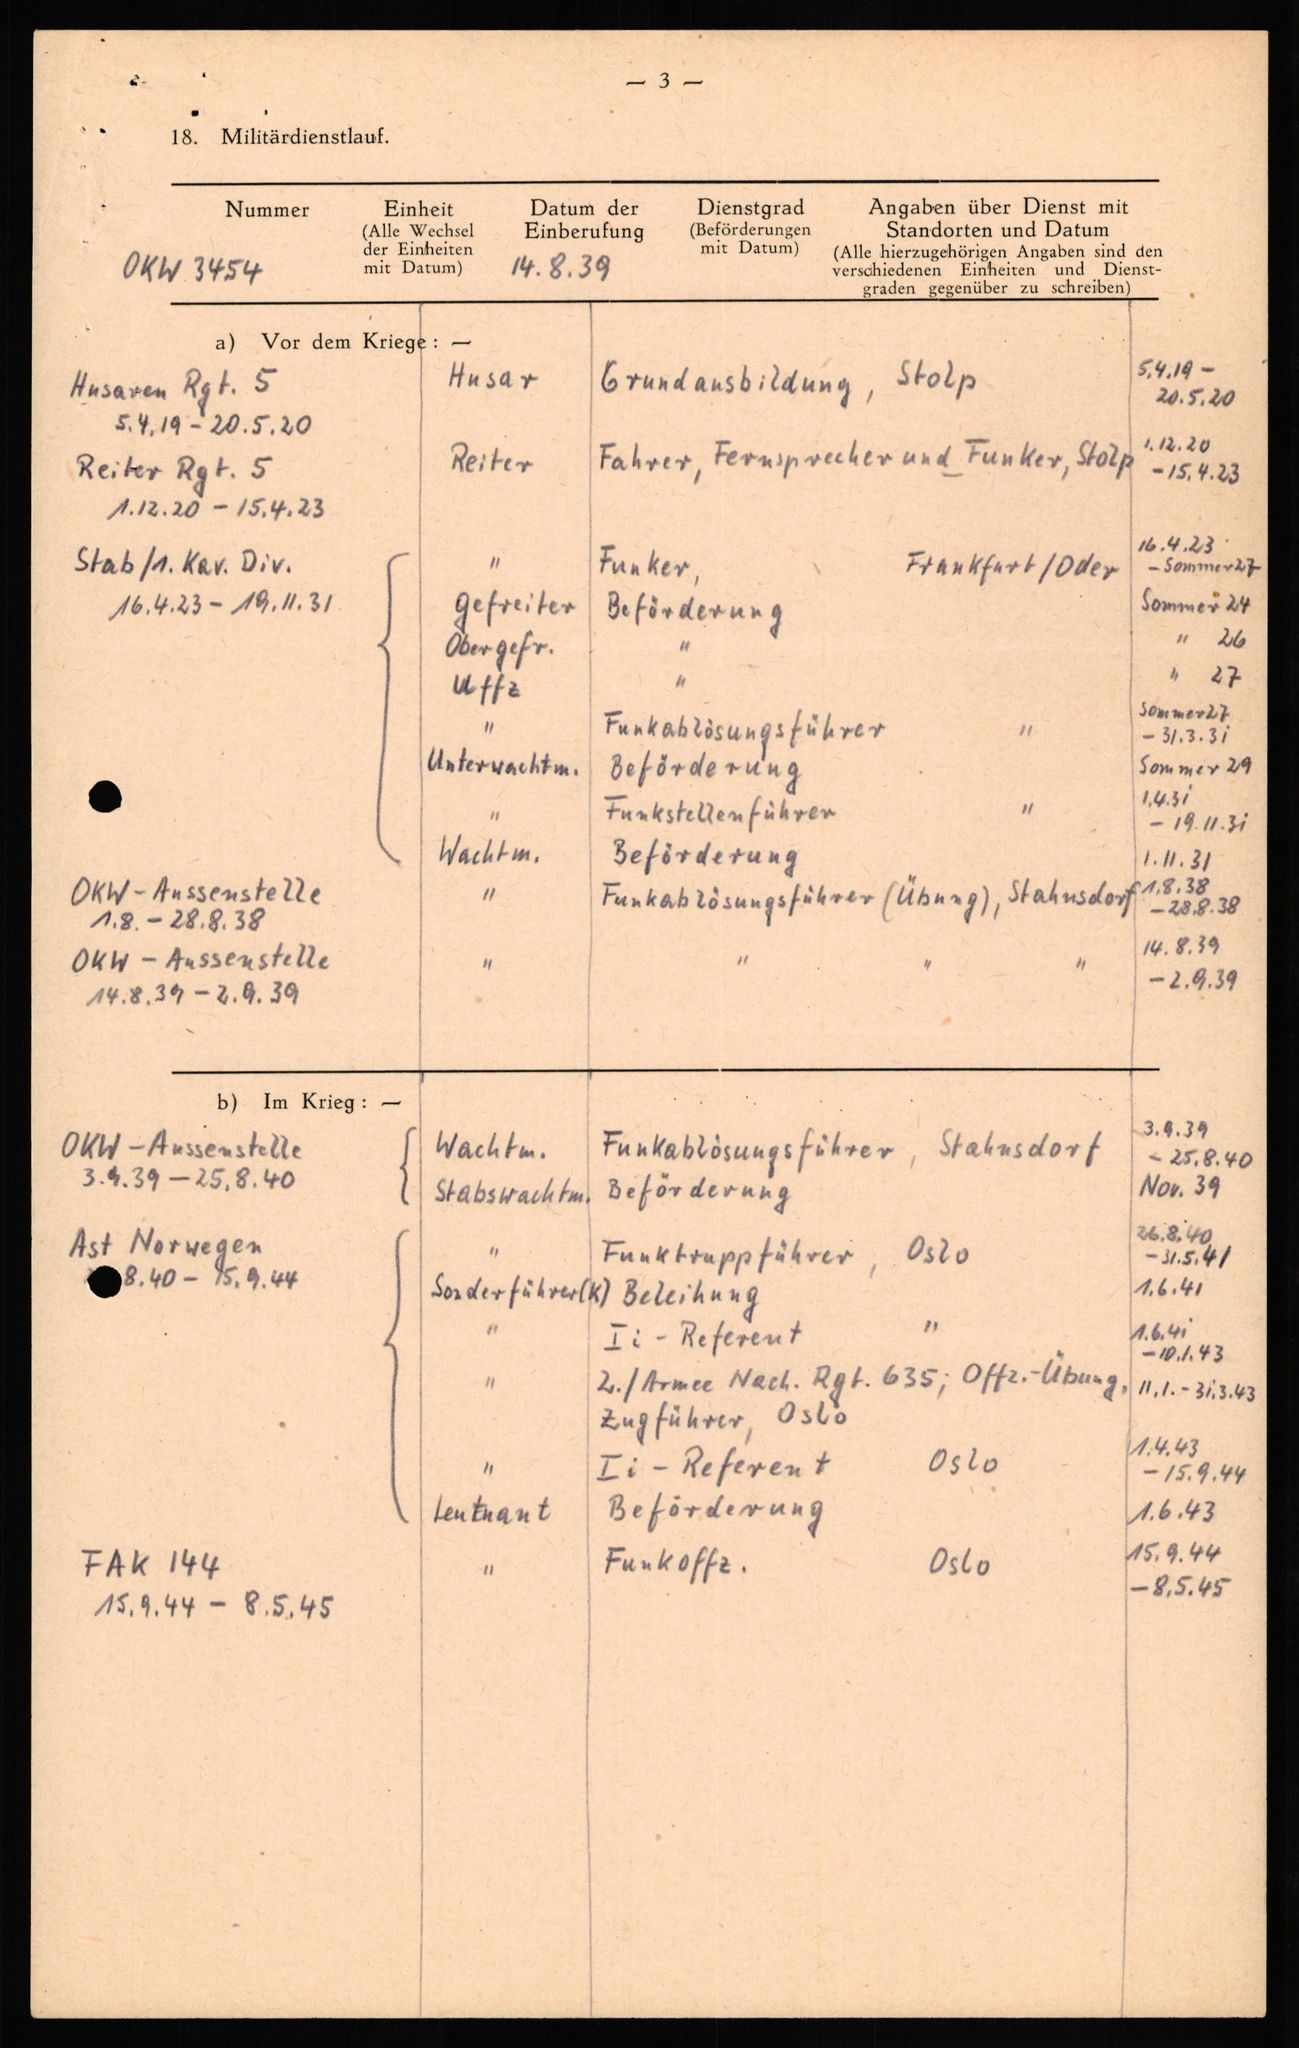 — 3 —
18. Militärdienstlauf.
Nummer Einheit Datum der Dienstgrad Angaben über Dienst mit
(Alle Wechsel Einberufung (Beförderungen Standorten und Datum
der Einheiten mit Datum) (Alle hierzugehörigen Angaben sind den
mit Datum) verschiedenen Einheiten und Dienst-
graden gegenüber zu schreiben)
OKW 3454 14.8.39
a) Vor dem Kriege: —
Husaren Rgt. 5 Husar Grundausbildung, Stolp 5.4.19 –
5.4.19 – 20.5.20 20.5.20
Reiter Rgt. 5 Reiter Fahrer, Fernsprecher und Funker, Stolp 1.12.20
1.12.20 – 15.4.23 – 15.4.23
Stab/1. Kav. Div. " Funker, Frankfurt/Oder 16.4.23
– Sommer 27
16.4.23 – 19.11.31 Gefreiter Beförderung Sommer 24
Obergefr. " " 26
Uffz " " 27
" Funkablösungsführer " Sommer 27
– 31.3.31
Unterwachtm. Beförderung Sommer 29
" Funkstellenführer " 1.4.31
– 19.11.31
Wachtm. Beförderung 1.11.31
OKW – Aussenstelle " Funkablösungsführer (Übung), Stahnsdorf 1.8.38
1.8. – 28.8.38 – 28.8.38
OKW – Aussenstelle " " " " 14.8.39
14.8.39 – 2.9.39 – 2.9.39
b) Im Krieg: —
OKW – Aussenstelle Wachtm. Funkablösungsführer, Stahnsdorf 3.9.39
3.9.39 – 25.8.40 – 25.8.40
Stabswachtm. Beförderung Nov. 39
Ast Norwegen " Funktruppführer, Oslo 26.8.40
8.40 – 15.9.44 – 31.5.41
Sonderführer(K) Beleihung 1.6.41
" Ii – Referent " 1.6.41
– 10.1.43
" 2./Armee Nach. Rgt. 635; Offz.-Übung, 11.1. – 31.3.43
Zugführer, Oslo
" Ii – Referent Oslo 1.4.43
– 15.9.44
Leutnant Beförderung 1.6.43
FAK 144 " Funkoffz. Oslo 15.9.44
15.9.44 – 8.5.45 – 8.5.45